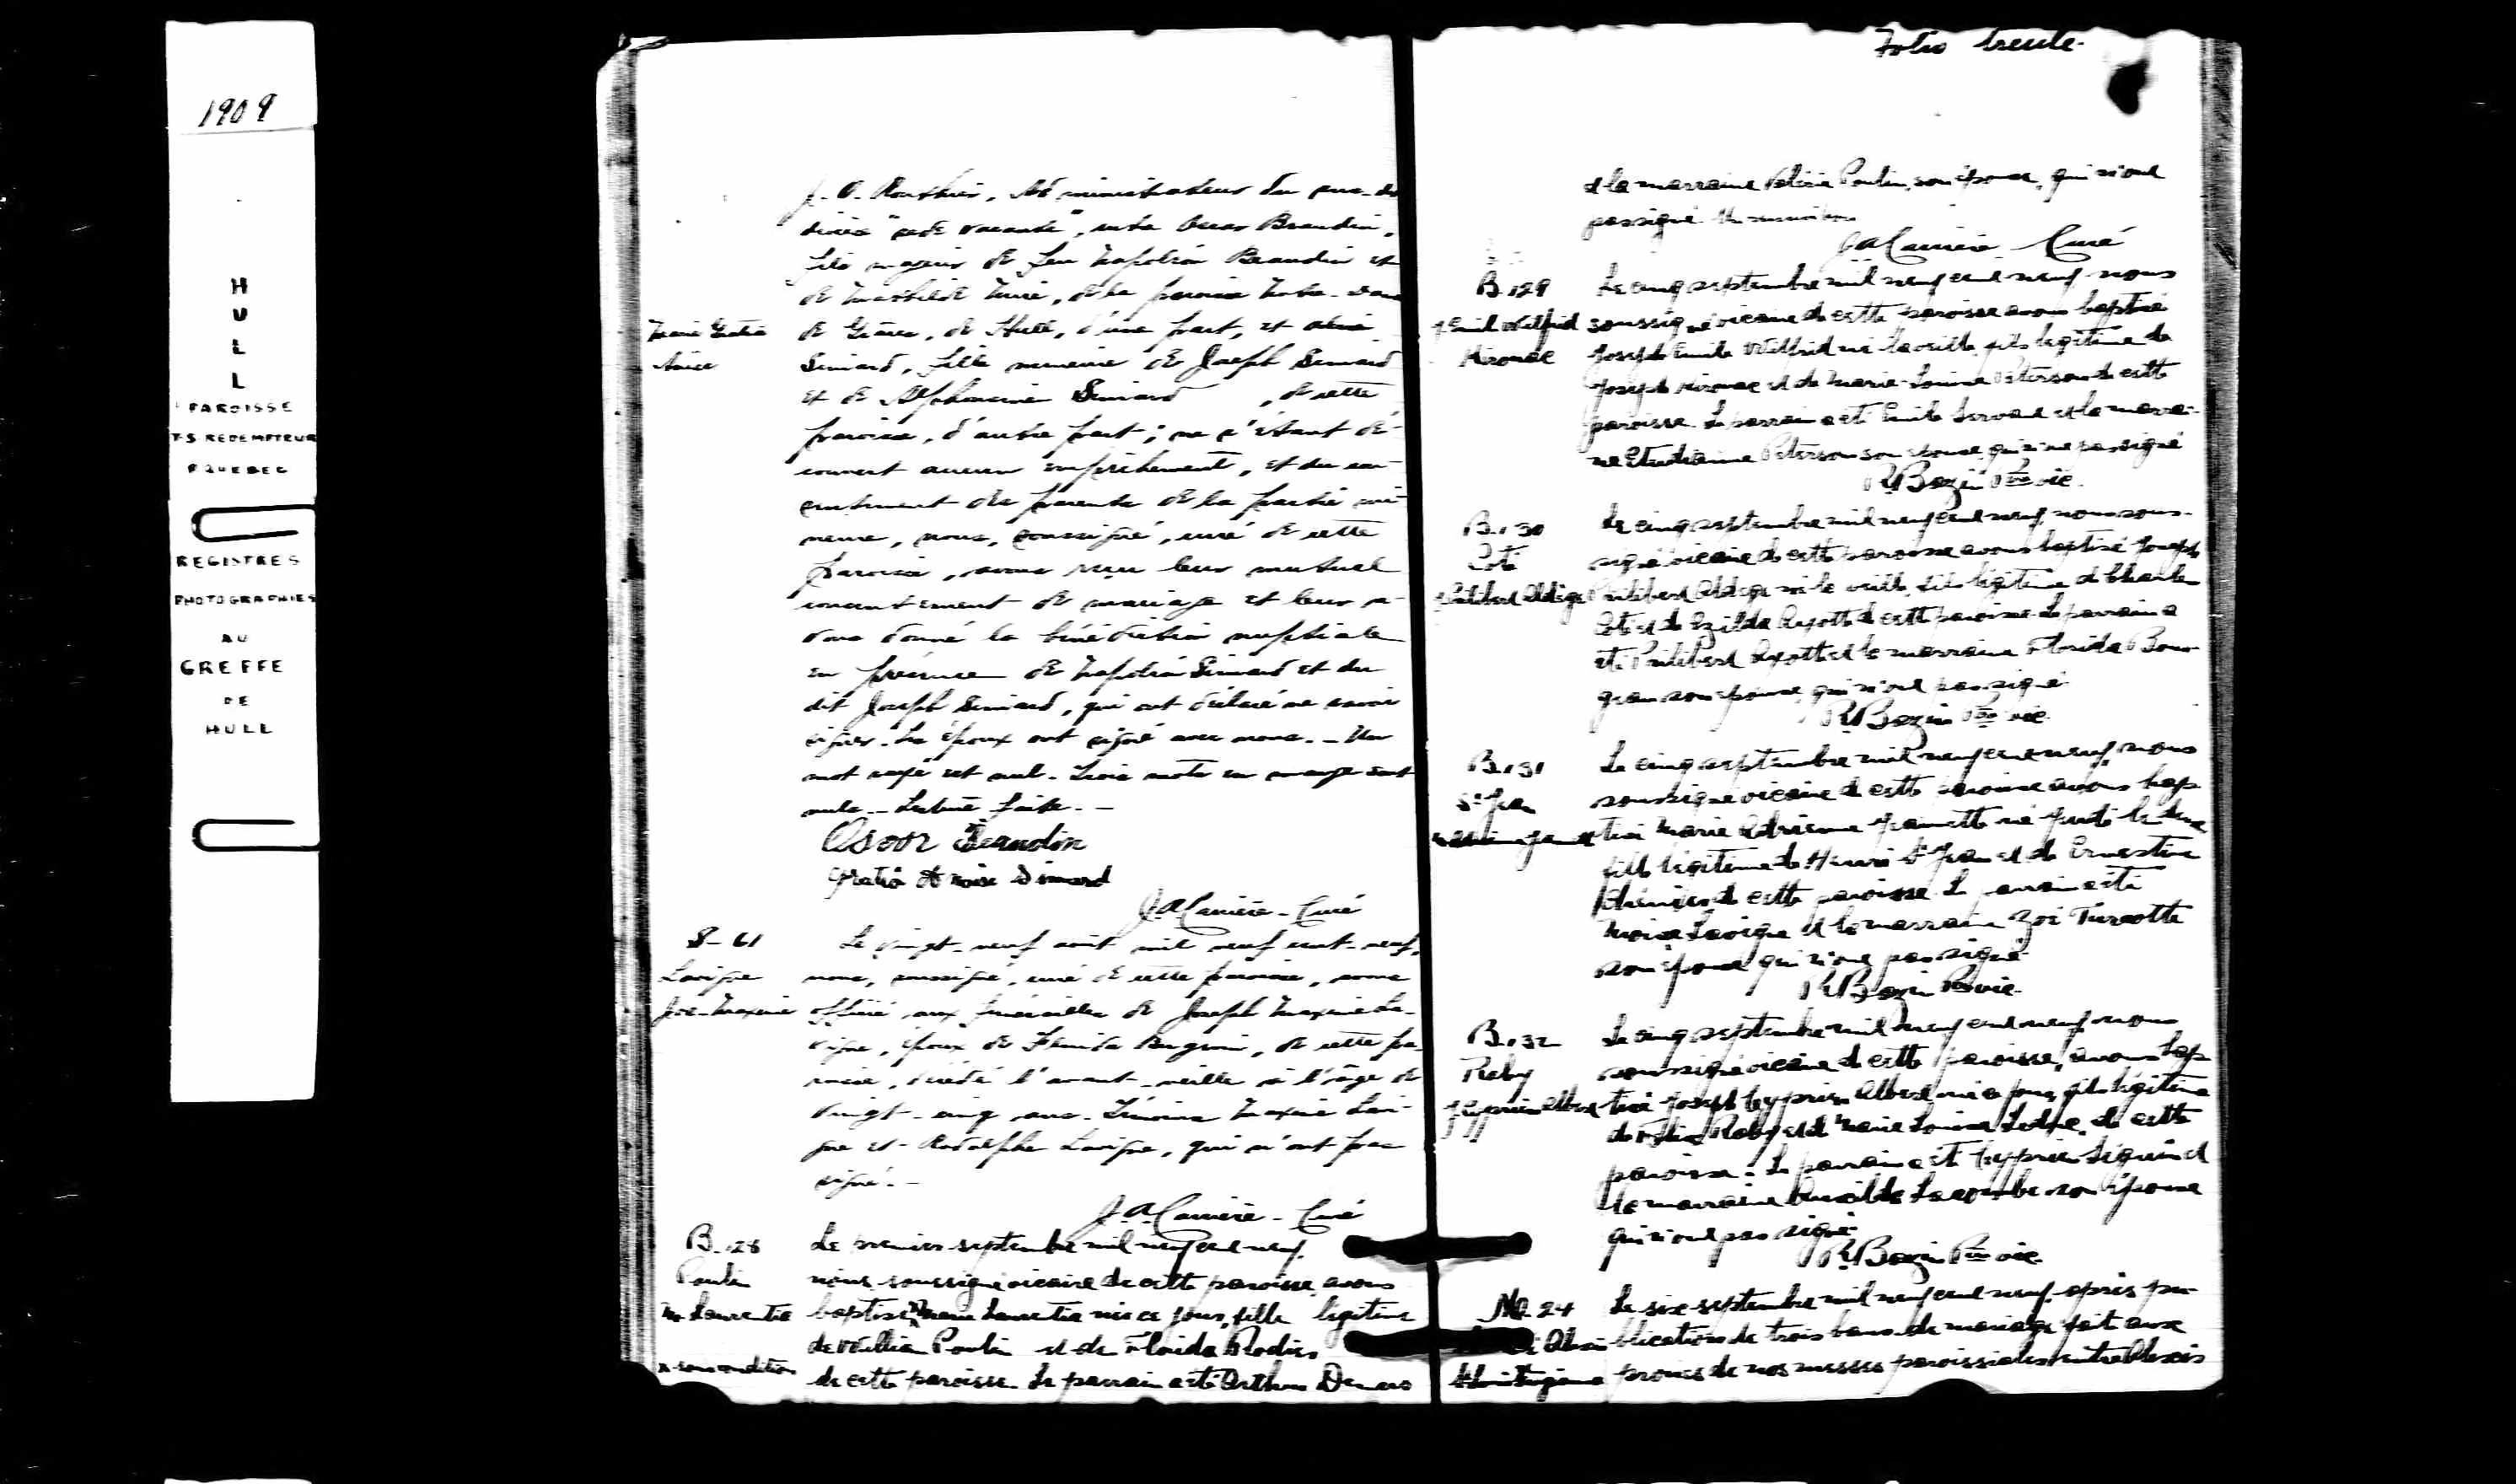 1909
H
U
L
L
PAROISSE
T-S REDEMPTEUR
P QUEBEC
REGISTRES
PHOTOGRAPHIES
AU
GREFFE
DE
HULL
J. O. Routhier, Administrateur du
"sede vacante", entre Oscar Beaudin,
fils majeur de feu Napoléon Beaudin et
de Mathilde, de la paroisse Notre-Dame
de Grâces, de Hull, d'une part, et
Simard, fille mineure de Joseph Simard
et de Alphonsine Simard, de cette
paroisse, d'autre part; ne s'étant dé-
couvert aucun empêchement, et du con-
sentement des parents de la partie mi-
neure, nous, soussigné, curé de cette
paroisse, avons reçu leur mutuel
consentement de mariage et leur a-
vons donné la bénédiction nuptiale
en présence de Napoléon Simard et du
dit Joseph Simard, qui ont déclaré ne savoir
signer. Les époux ont signé avec nous. - Un
mot rayé est nul. Trois mots en marge sont
nuls - Lecture faite. -
Oscar Beaudin
Simard
J.A. Carrière - Curé
S-61
Lavigne
Jos-Maxime
Le vingt-neuf août mil neuf cent-neuf,
nous, soussigné, curé de cette paroisse, avons
assisté aux funérailles de Joseph Maxime La-
vigne, époux de, de cette pa-
roisse, décédé l'avant-veille à l'âge de
vingt-cinq ans. Témoins Maxime Lavi-
gne et Rodolphe Lavigne, qui n'ont pas
signé. -
J.A. Carrière - Curé
B-128
Poulin
M-Laurentia
x sous condition
Le premier septembre mil neuf cent neuf,
nous soussigné vicaire de cette paroisse avons
baptisé x Marie Laurentia née ce jour, fille légitime
de William Poulin et de Florida Rodier
de cette paroisse. Le parrain a été Arthur Demers
Folio trente.
et la marraine Poulin, son épouse, qui n'ont
pas signé.
J.A. Carrière Curé
B.129
J Emile Wilfrid
Kirouac
Le cinq septembre mil neuf cent neuf nous
soussigné vicaire de cette paroisse avons baptisé
Joseph Emile Wilfrid né la veille, fils légitime de
Joseph Kirouac et de Marie-Louise Peterson de cette
paroisse. Le parrain a été Emile et la marrai-
ne Peterson son épouse qui n'ont pas signé
R Bazin Ptre vic.
B.130
Coté
Philibert Aldège
Le cinq septembre mil neuf cent neuf, nous sous-
signé vicaire de cette paroisse avons baptisé Joseph
Philibert Aldège né la veille, fils légitime de Charles
Coté et de Exilda Ayotte de cette paroisse. Le parrain a
été Philibert Ayotte et la marraine Florida Bour-
geau son épouse, qui n'ont pas signé
R Bazin Ptre vic.
B.131
St Jean
Le cinq septembre mil neuf cent neuf, nous
soussigné vicaire de cette paroisse avons bap-
tisé Marie Adrienne Jeannette née
fille légitime de Henri St Jean et de Ernestine
de cette paroisse. Le parrain a été
Moïse Lavigne et la marraine Zoé Turcotte
son épouse qui n'ont pas signé
R Bazin Ptre vic.
B.132
Raby
J Cyprien Albert
Le cinq septembre mil neuf cent neuf nous
soussigné vicaire de cette paroisse, avons bap-
tisé Joseph Cyprien Albert né ce jour, fils légitime
de Félix Raby et de Marie Louise, de cette
paroisse. Le parrain a été Cyprien Séguin et
la marraine Lacombe son épouse
qui n'ont pas signé
R Bazin Ptre vic.
M. 24
Le six septembre mil neuf cent neuf après pu-
blication de trois bans de mariage fait aux
prônes de nos messes paroissiales entre Alexis